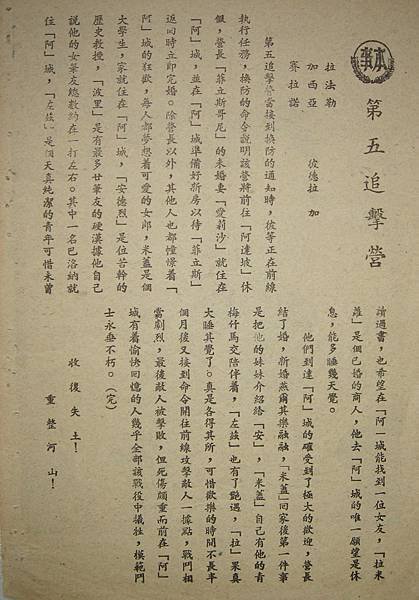 第五追擊營
拉法勒
加西亞　彼德拉　加
賽拉諾
第五追擊營當接到換防的通知時，彼等正在前線
執行任務，換防的命令說明該營將前往「阿達坡」休
假，營長「菲立斯哥尼」的未婚妻「愛莉沙」就住在
「阿」城，並在「阿」城準備好新房以待「菲立斯」
返回時立即完婚。除營長以外，其他人也都憧憬着「
阿」城的狂歡，每人都夢想着可愛的女郎，米蓋是個
大學生，家就住在「阿」城，「安德烈」是位苦幹的
歷史教授，「波里」是有最多女筆友的硬漢據他自己
說他的女筆友總數約在一打左右。其中一名巴洛納就
住「阿」城，「左茲」是個天真純潔的青年可惜未曾
讀過書，也希望在「阿」城能找到一位女友，「拉米
羅」是個已婚的商人，他去「阿」城的唯一願望是休
息，能多睡幾天覺。
他們到達「阿」城的確受到了極大的歡迎，營長
結了婚，新婚燕爾其樂融融，「米蓋」回家後第一件事
是把他的妹妹介紹給「安」，「米蓋」自己有他的青
梅竹馬交陪伴着，「左茲」也有了艷遇，「拉」果真
大睡其覺了。真是各得其所，可惜歡樂的時間不長半
個月後又接到命令開往前線攻擊敵人一據點，戰鬥相
當劇烈，最後敵人被擊敗，但死傷頗重而前在「阿」
城有着愉快回憶的人幾乎全部該戰役中犧牲，模範鬥
士永垂不朽。（完）
收復失土！
重整河山！